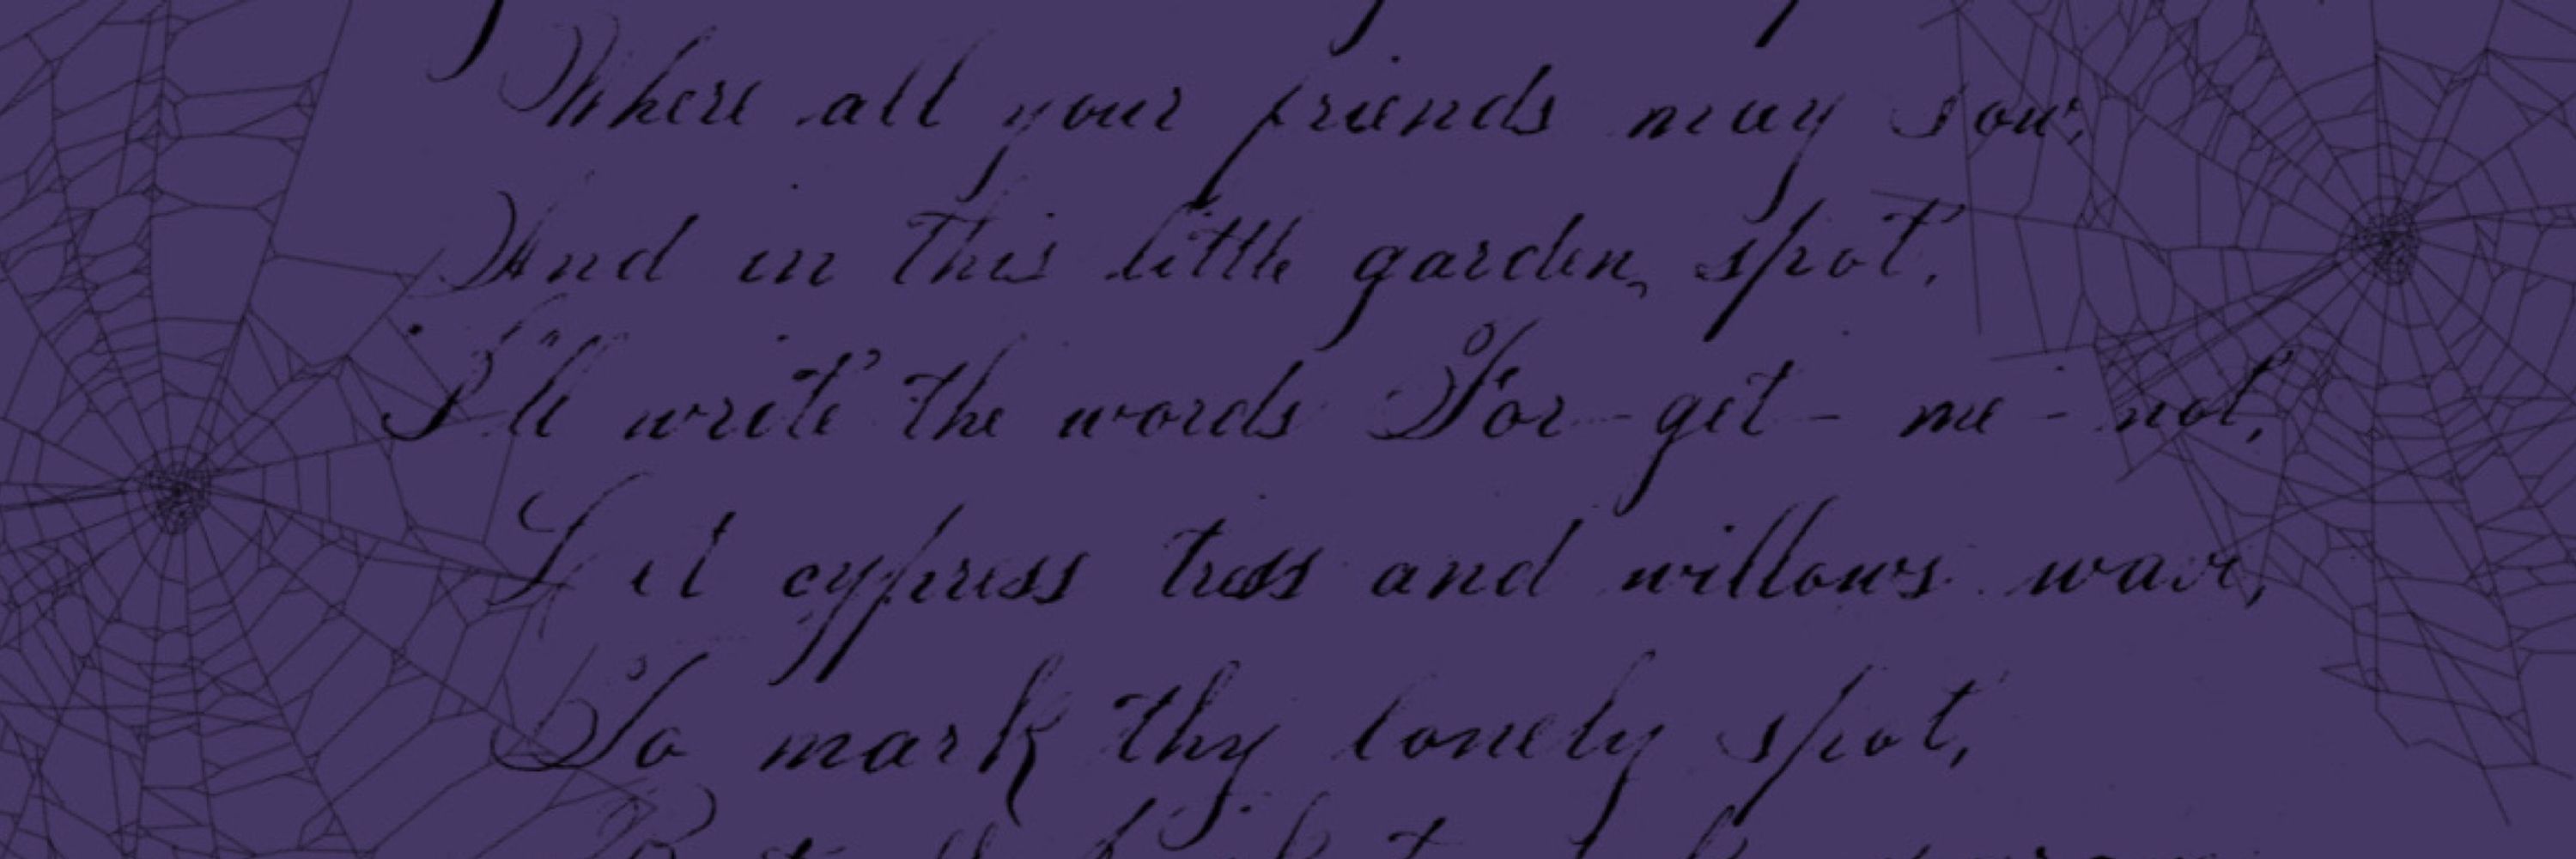 Where all your friends may sow,
And in this little garden, spot,
I'll write the words For-get-me-not,
Let cypress trees and willows wave,
To mark thy lonely spot,